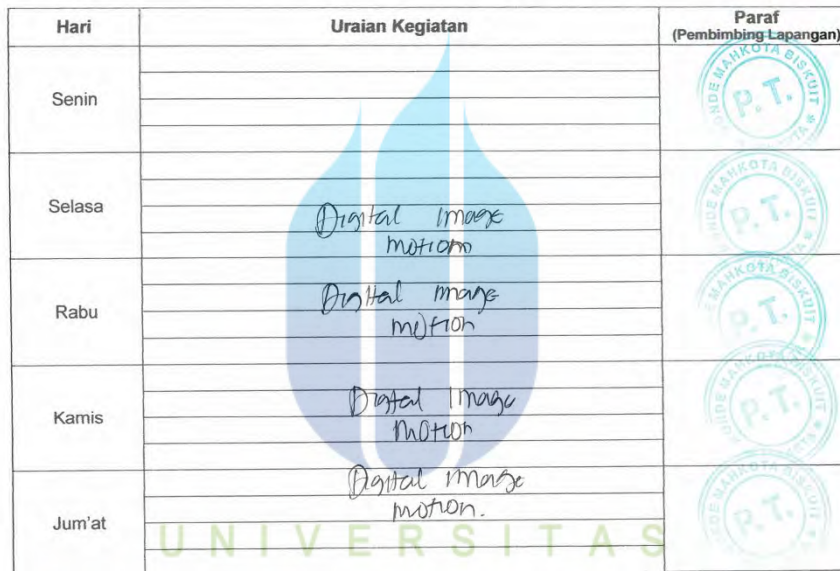 Hari Uraian Kegiatan Paraf
(Pembimbing Lapangan)
Senin
MAHKOTA BISKUIT
P. T.
Selasa
Digital Image
motion
MAHKOTA BISKUIT
P. T.
Rabu
Digital Image
motion
MAHKOTA BISKUIT
P. T.
Kamis
Digital Image
motion
MAHKOTA BISKUIT
P. T.
Jum'at
Digital Image
motion.
MAHKOTA BISKUIT
P. T.
UNIVERSITAS